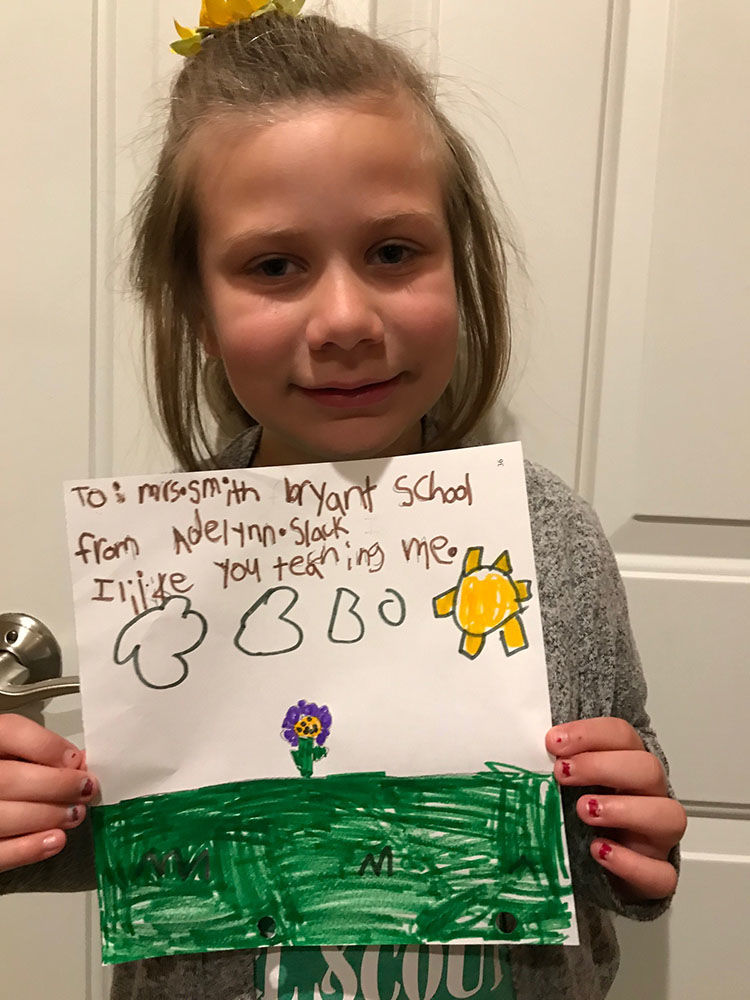 To: mrs.smith bryant School
from Adelynn.Slack
I like you teahing me.
SCOU